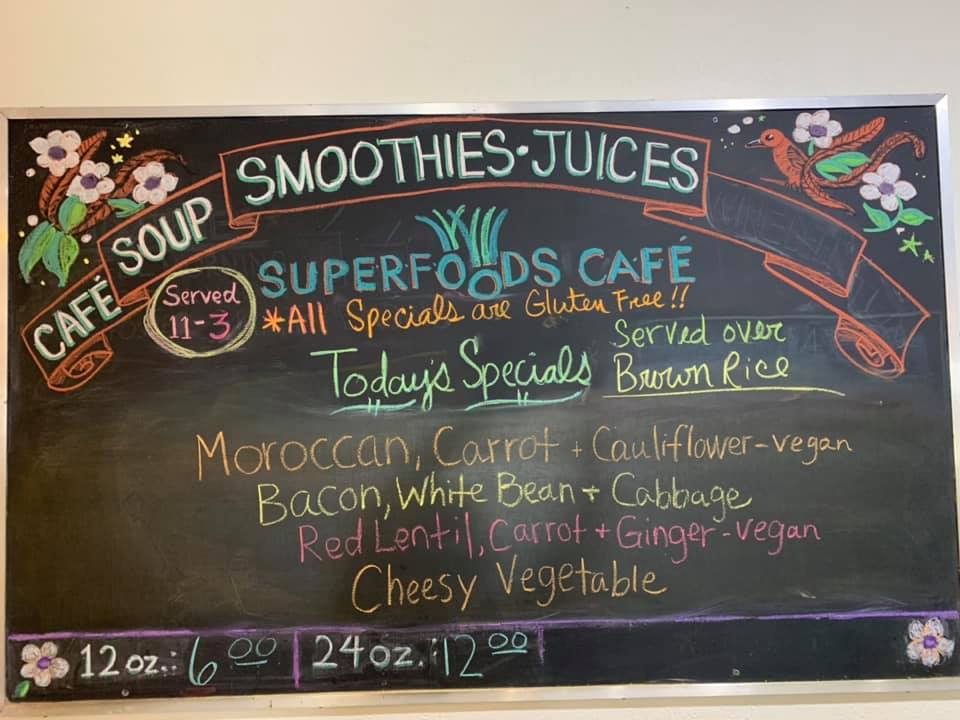 CAFÉ SOUP SMOOTHIES·JUICES
SUPERFOODS CAFÉ
Served
11-3
*All Specials are Gluten Free!!
Today's Specials
Served over
Brown Rice
Moroccan, Carrot + Cauliflower-vegan
Bacon, White Bean + Cabbage
Red Lentil, Carrot + Ginger-vegan
Cheesy Vegetable
12 oz.: 6 00
24 oz.: 12 00